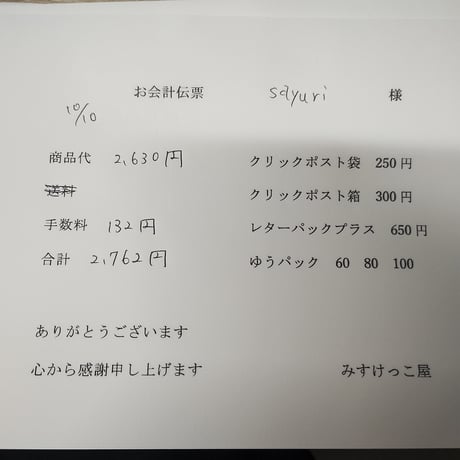 お会計伝票 sayuri 様
10/10
商品代 2,630円 クリックポスト袋 250円
送料 クリックポスト箱 300円
手数料 132円 レターパックプラス 650円
合計 2,762円 ゆうパック 60 80 100
ありがとうございます
心から感謝申し上げます みすけっこ屋